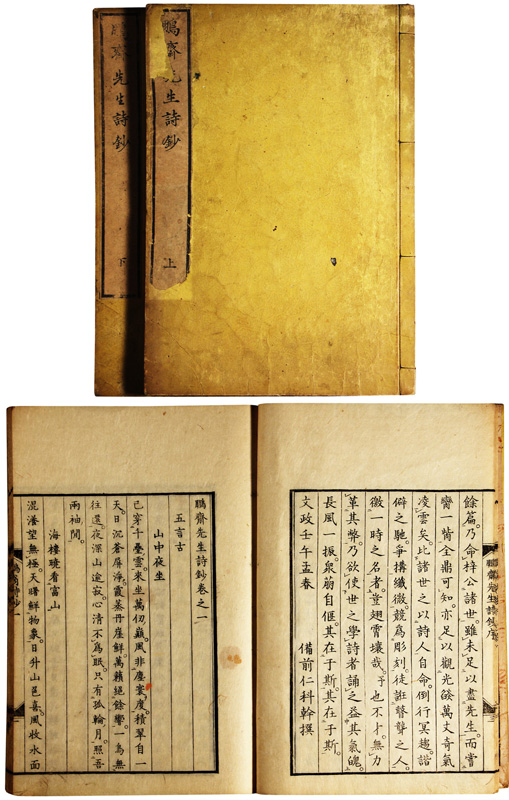 鵬齋先生詩鈔 上
齋先生詩鈔 下
餘篇。乃命梓公諸世。雖未足以盡先生。而嘗
臠一胾全鼎可知。亦足以觀光燄萬丈奇氣
凌雲矣。比諸世之以詩人自命。倒行冥趨。詣
僻之馳。爭搆纖微。競爲彫刻。徒誑瞽聾之人。
徼一時之名者。豈翅霄壤哉。予也不才。無力
革其弊。乃欲使世之學詩者誦之益其氣魄。
長風一振。衆蒭自偃。其在于斯。其在于斯。
文政壬午孟春
備前仁科幹撰
鵬齋先生詩鈔序
鵬齋先生詩鈔卷之一
五言古
山中夜坐
己穿千疊雲。來坐萬仞巔。風非塵寰度。積翠自一
天。日沉蒼屏淨。霞蒸丹崖鮮。萬籟絕餘響。一鳥無
往還。夜深山逾寂。心清不爲眠。只有孤輪月。照吾
兩袖間。
海樓曉看富山
混瀁望無極。天曙鮮物象。日升山邑喜。風收水面